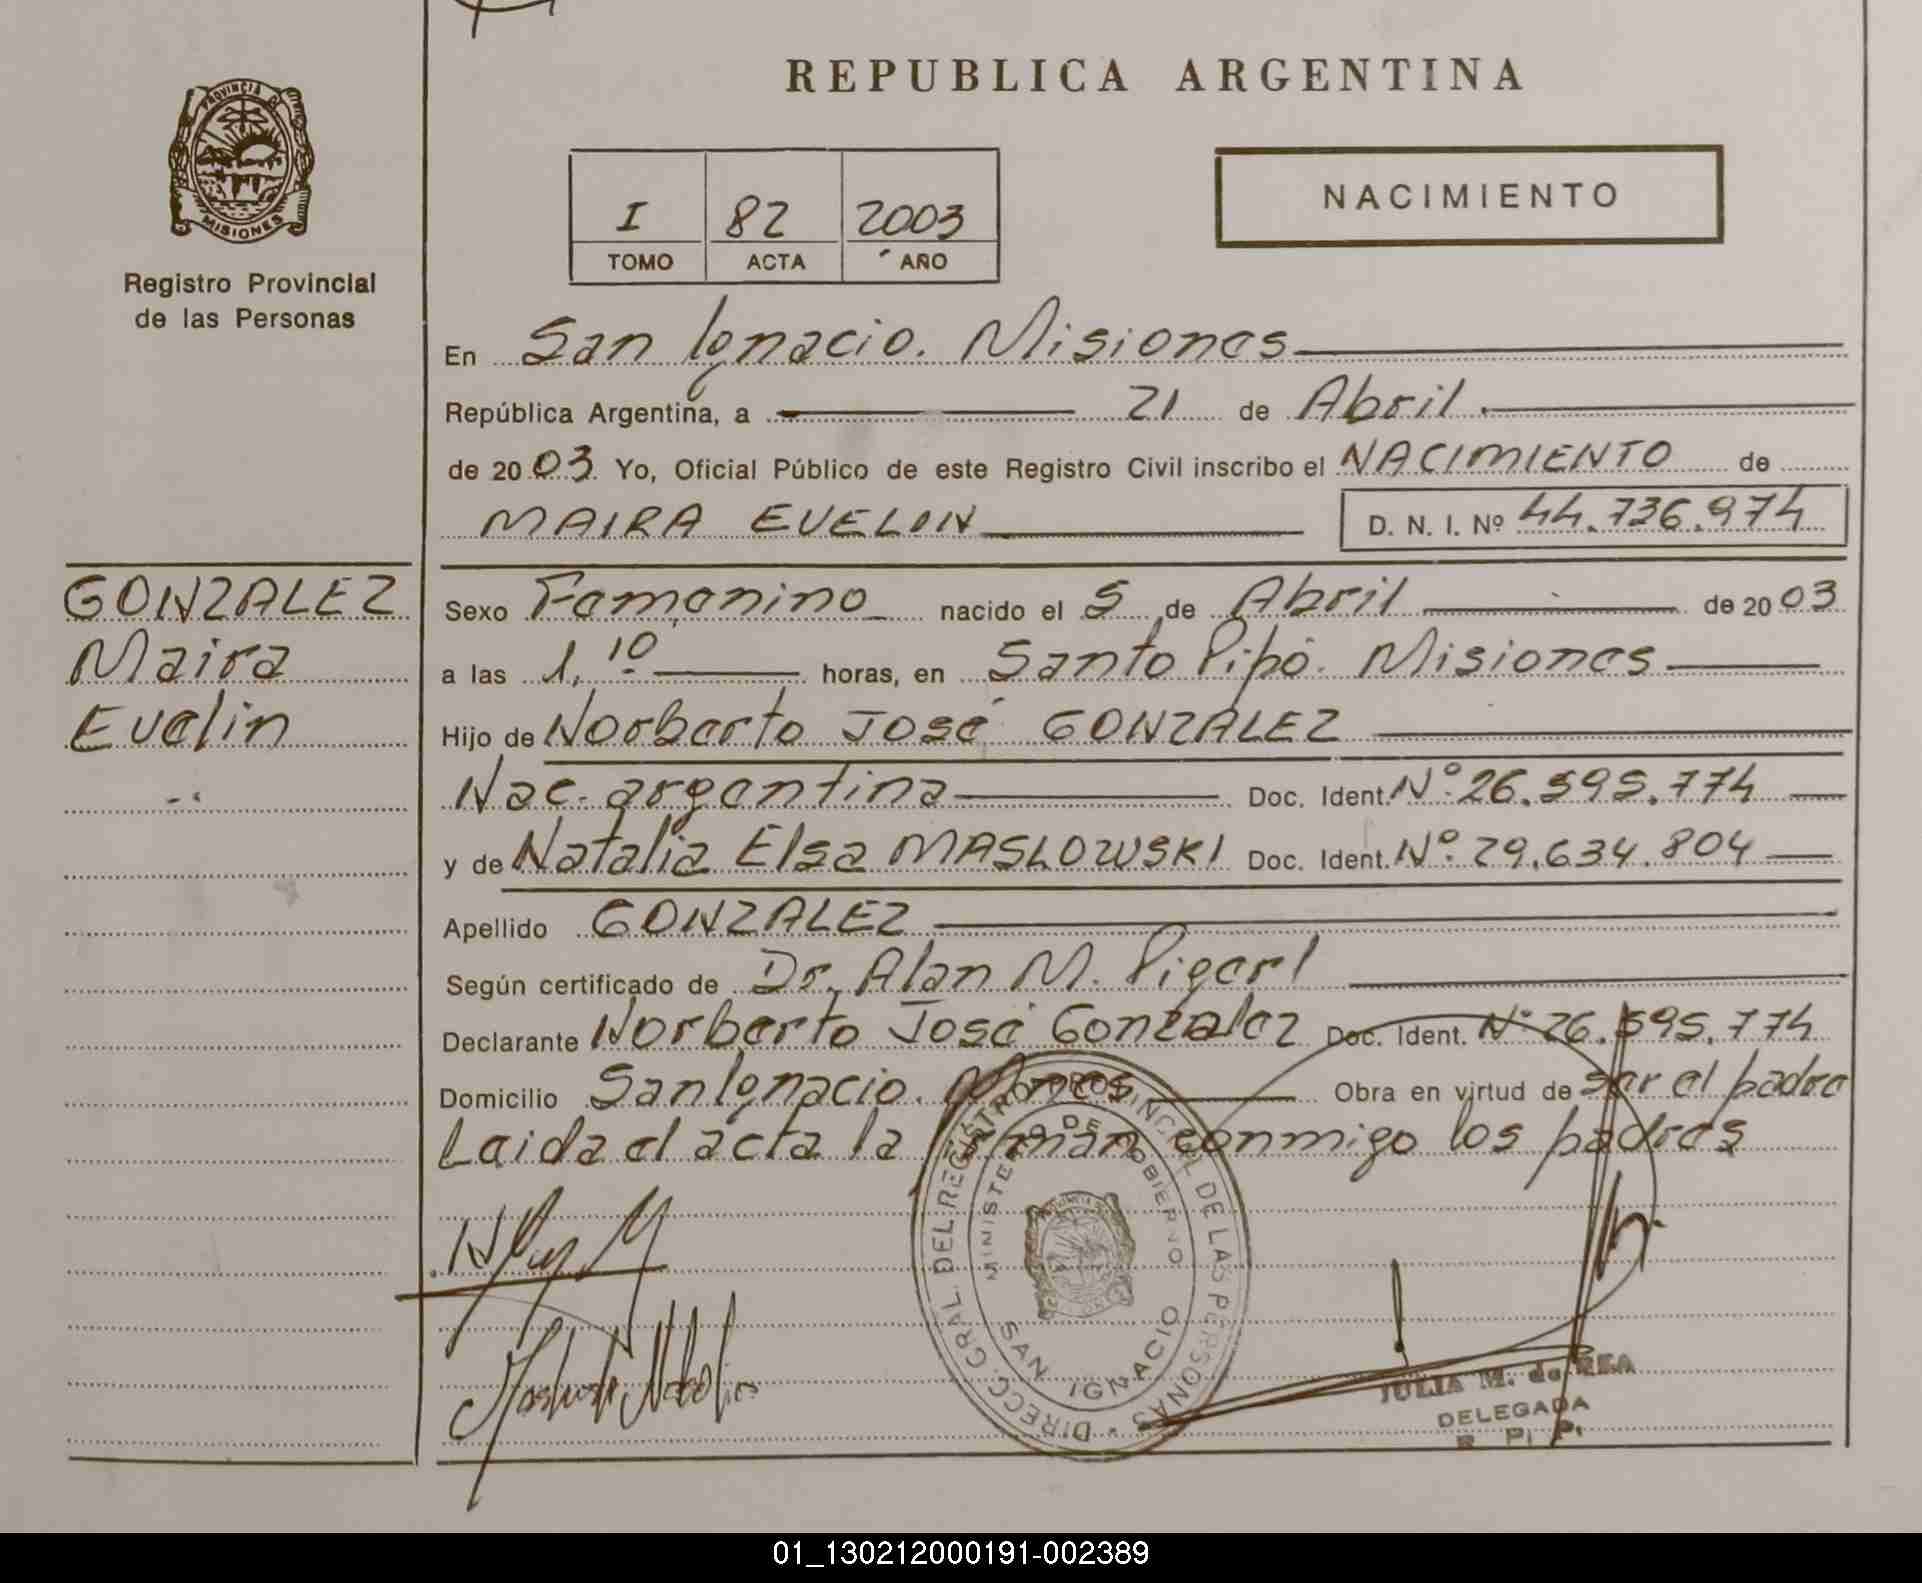 REPUBLICA ARGENTINA
PROVINCIA DE
MISIONES
Registro Provincial
de las Personas
I 82 2003
TOMO ACTA AÑO
NACIMIENTO
En San Ignacio. Misiones
República Argentina, a 21 de Abril
de 20 03 Yo, Oficial Público de este Registro Civil inscribo el NACIMIENTO de
MAIRA EVELIN D. N. I. Nº 44.736.974
GONZALEZ
Maira
Evelin
Sexo Femenino nacido el 5 de Abril de 20 03
a las 1,10 horas, en Santo Pipó. Misiones
Hijo de Norberto José GONZALEZ
Nac. argentina Doc. Ident. Nº 26.595.774
y de Natalia Elsa MASLOWSKI Doc. Ident. Nº 29.634.804
Apellido GONZALEZ
Según certificado de Dr. Alan M. Pigerl
Declarante Norberto José Gonzalez Doc. Ident. Nº 26.595.774
Domicilio San Ignacio. Mnes Obra en virtud de ser el padre
Leida el acta la firman conmigo los padres
DIRECC. GRAL. DEL REGISTRO PROVINCIAL DE LAS PERSONAS
MINISTERIO DE GOBIERNO
SAN IGNACIO
JULIA M. de REA
DELEGADA
R. P. P.
01_130212000191-002389